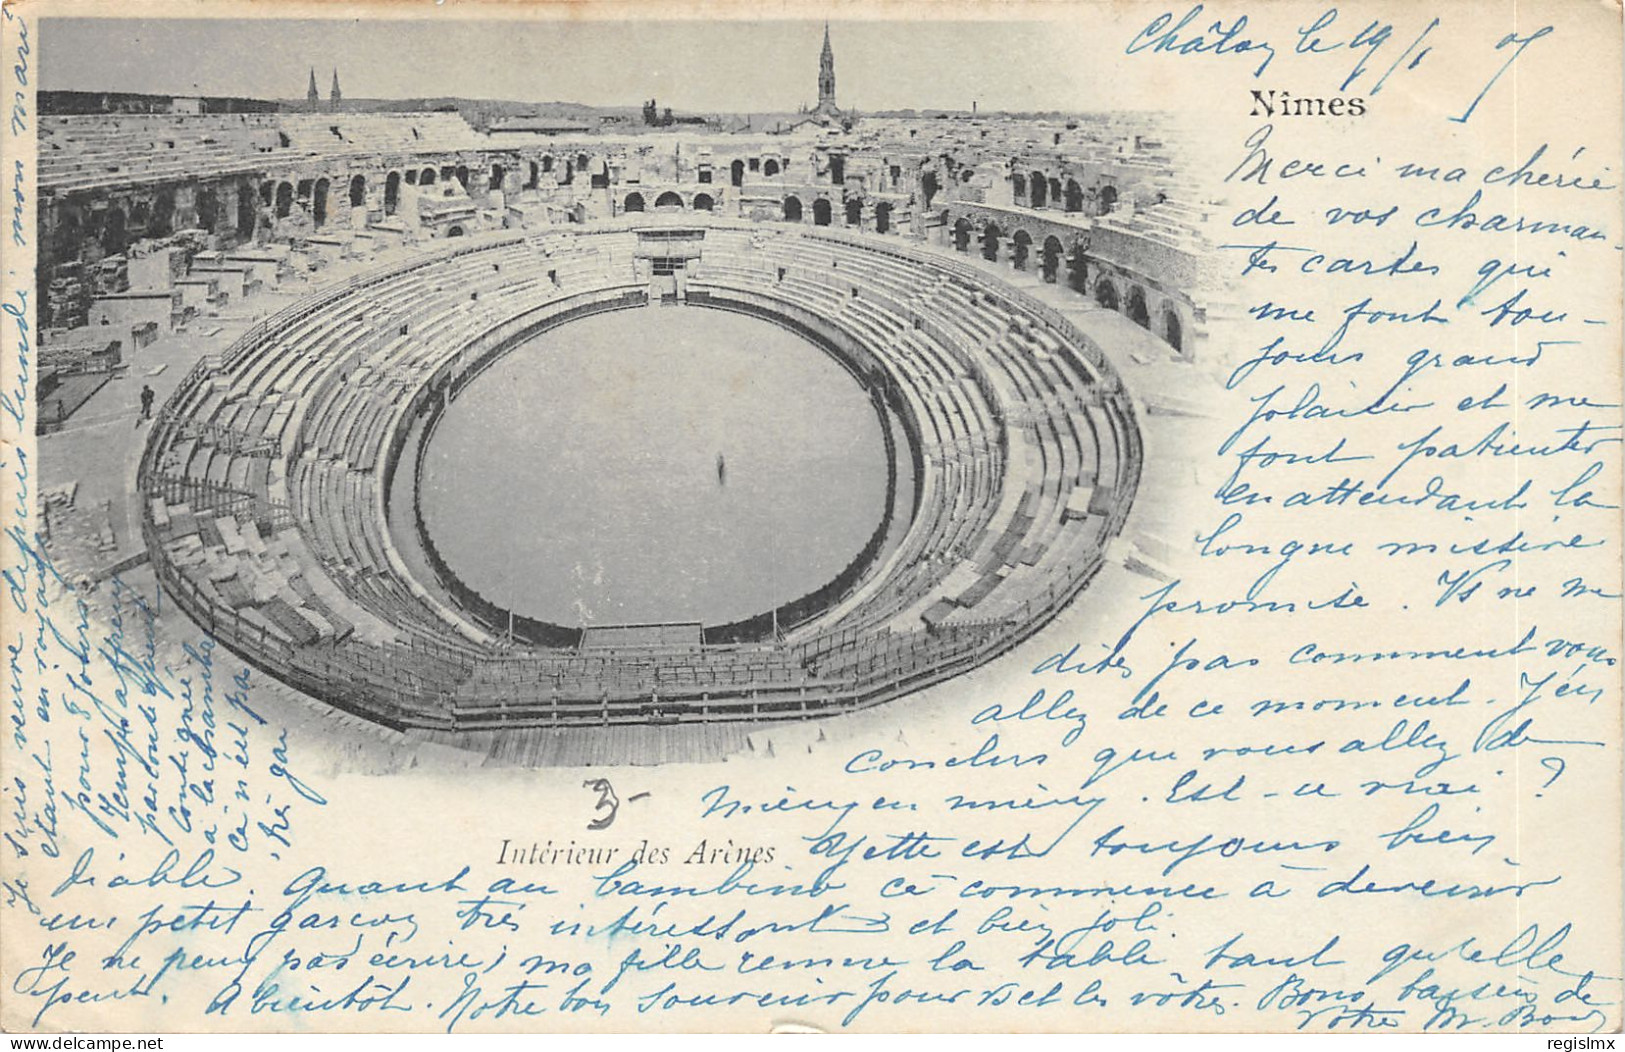 Châlon le 19/1 05
Nîmes
Merci ma chérie
de vos charman-
tes cartes qui
me font tou-
jours grand
plaisir et me
font patienter
en attendant la
longue missive
promise. Vs ne me
dites pas comment vous
allez de ce moment. J'en
conclus que vous allez de
mieux en mieux. Est-ce vrai ?
Yette est toujours bien
diable. Quant au bambino ce commence à devenir
un petit garçon très intéressant et bien joli.
Je ne peux pas écrire, ma fille remue la table tant qu'elle
peut. A bientôt. Notre bon souvenir pour vs et les vôtres. Bons baisers de
votre M.
3-
Intérieur des Arènes
Je suis veuve depuis lundi mon mari
étant en voyage
pour 8 jours
temps affreux
par conséquent
consignée
à la chambre
ce n'est pas
très gai
delcampe.net
regislmx